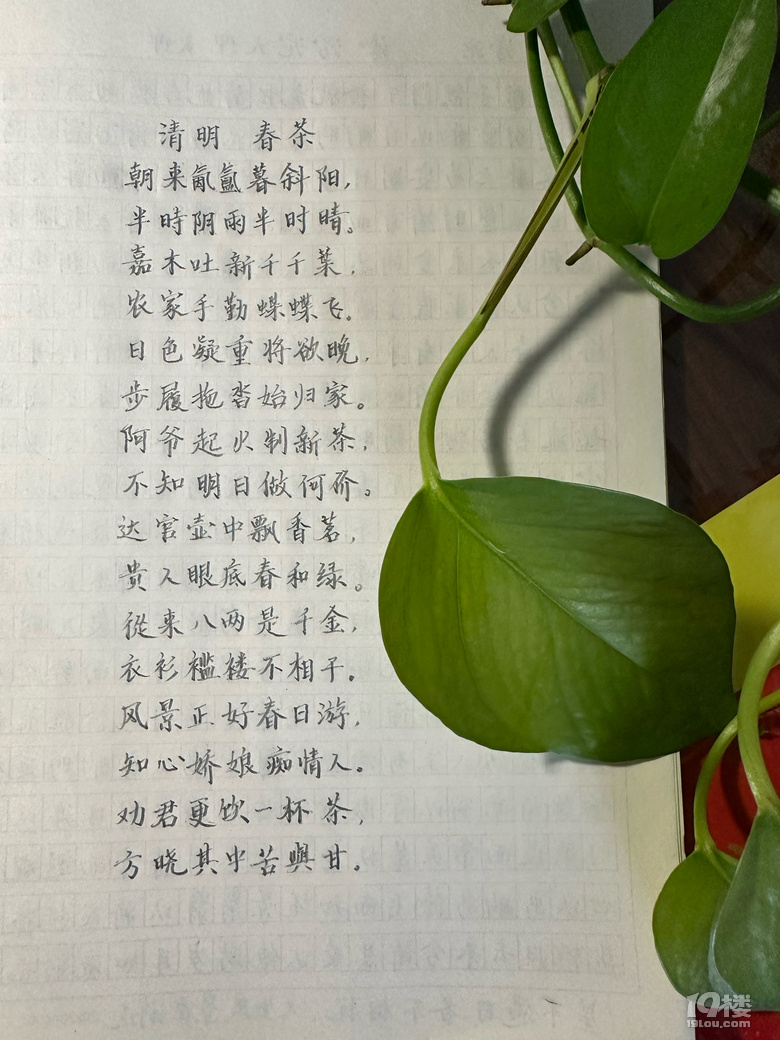 清明 春茶
朝来氤氲暮斜阳,
半時阴雨半时晴。
嘉木吐新千千葉,
农家手勤蝶蝶飞。
日色凝重将欲晚,
步履拖沓始归家。
阿爷起火制新茶,
不知明日做何价。
达官壶中飘香茗,
贵人眼底春和绿。
從来八两是千金,
衣衫褴褛不相干。
风景正好春日游,
知心娇娘痴情人。
劝君更饮一杯茶,
方晓其中苦與甘。
19楼
19lou.com